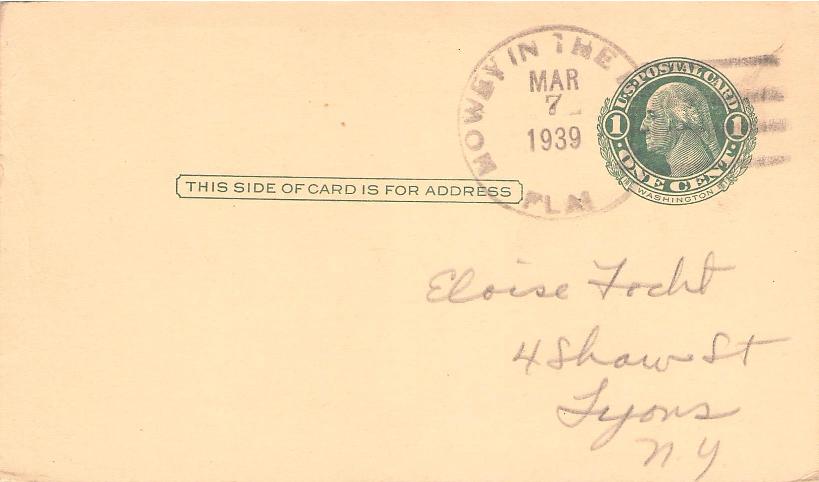 MOWRY IN THE
MAR
7
1939
FLA
U·S·POSTAL CARD
1 1
·ONE CENT·
WASHINGTON
THIS SIDE OF CARD IS FOR ADDRESS
Eloise Focht
4 Shaw St
Lyons
N Y